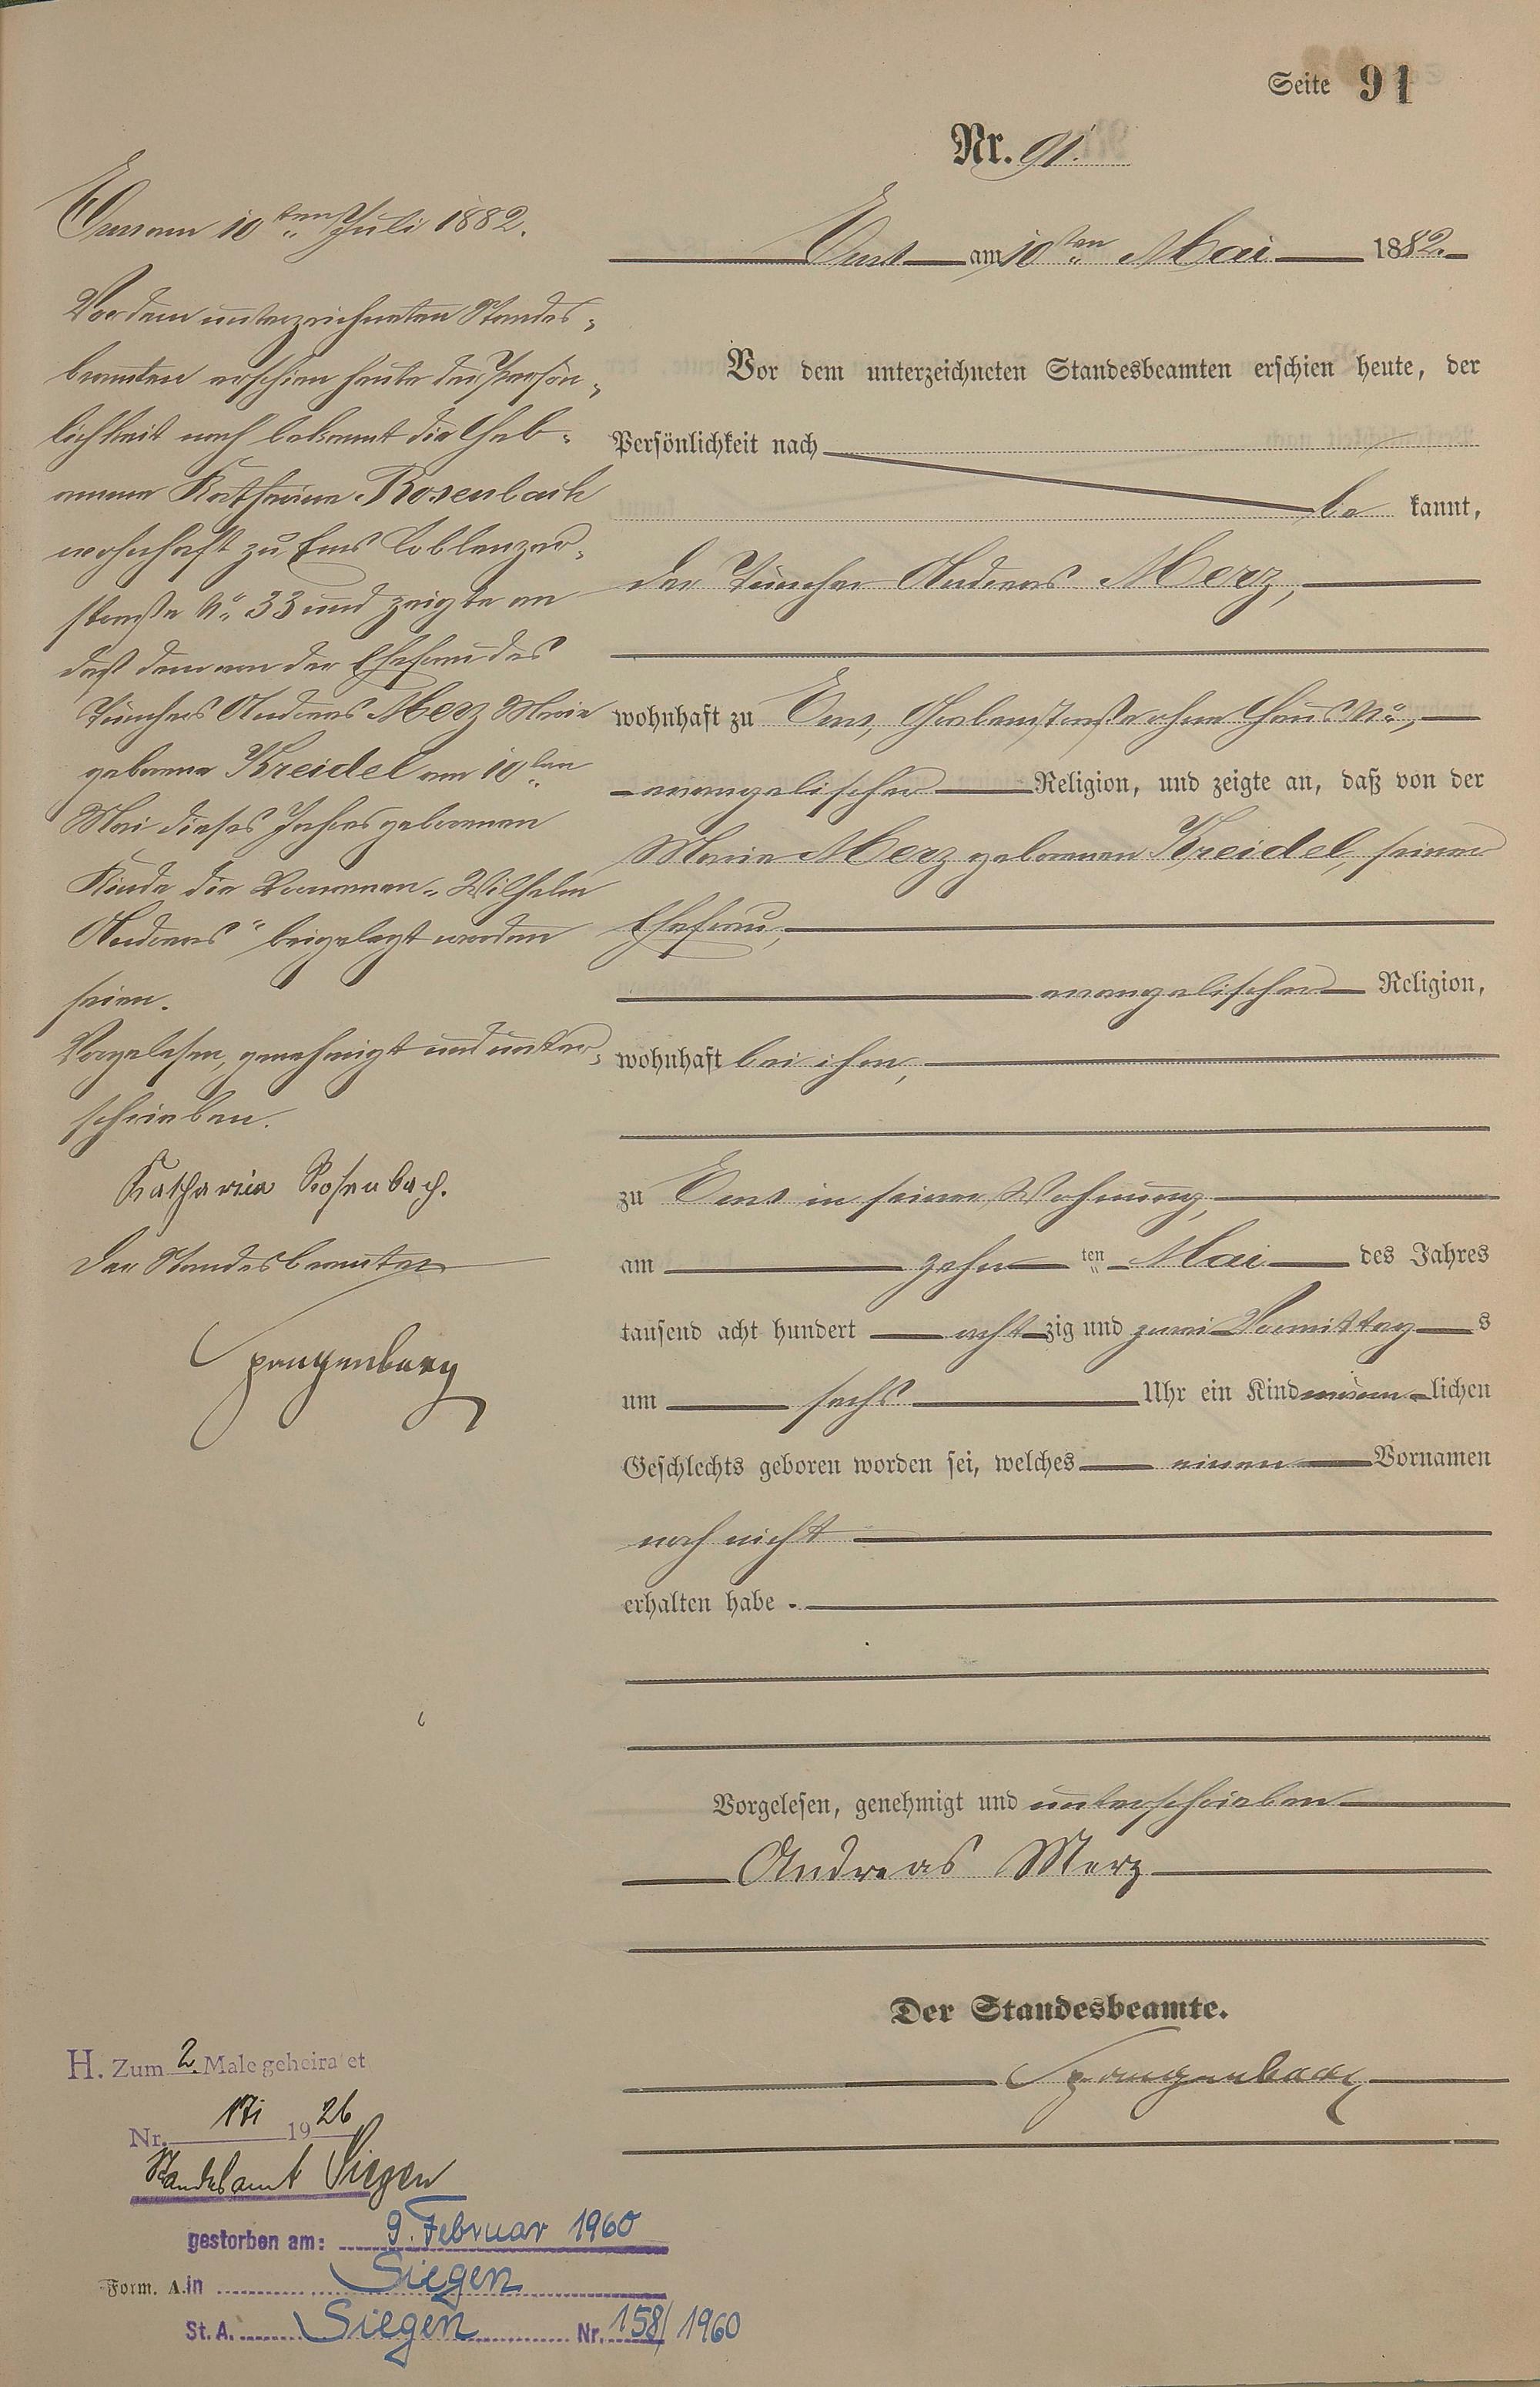 Seite 91
Nr. 91.
Ems am 10ten Juli 1882.
Vor dem unterzeichneten Standes-
beamten erschien heute der Persön-
lichkeit nach bekannt die Heb-
amme Katharina Rosenbach
wohnhaft zu Ems Coblenzer-
straße No. 33 und zeigte an
daß dem von der Ehefrau des
Tünchers Andreas Merz Marie
geborene Kreidel am 10ten
Mai dieses Jahres geborenen
Kinde die Vornamen „Wilhelm
Andreas“ beigelegt worden
seien.
Vorgelesen, genehmigt und unter-
schrieben.
Katharina Rosenbach.
Der Standesbeamte
Spangenberg
Ems am 10ten Mai 1882.
Vor dem unterzeichneten Standesbeamten erschien heute, der
Persönlichkeit nach
be kannt,
der Tüncher Andreas Merz,
wohnhaft zu Ems, straße ohne Haus No.,
evangelischer Religion, und zeigte an, daß von der
Marie Merz geborenen Kreidel, seiner
Ehefrau,
evangelischer Religion,
wohnhaft bei ihm,
zu Ems in seiner Wohnung,
am zehn ten Mai des Jahres
tausend acht hundert acht zig und zwei Vormittag s
um sechs Uhr ein Kind männ lichen
Geschlechts geboren worden sei, welches einen Vornamen
noch nicht
erhalten habe.
Vorgelesen, genehmigt und unterschrieben
Andreas Merz
Der Standesbeamte.
Spangenberg
H. Zum 2. Male geheiratet
Nr. 1926
Standesamt Siegen
gestorben am: 9. Februar 1960
Form. A. in Siegen
St. A. Siegen Nr. 158/1960